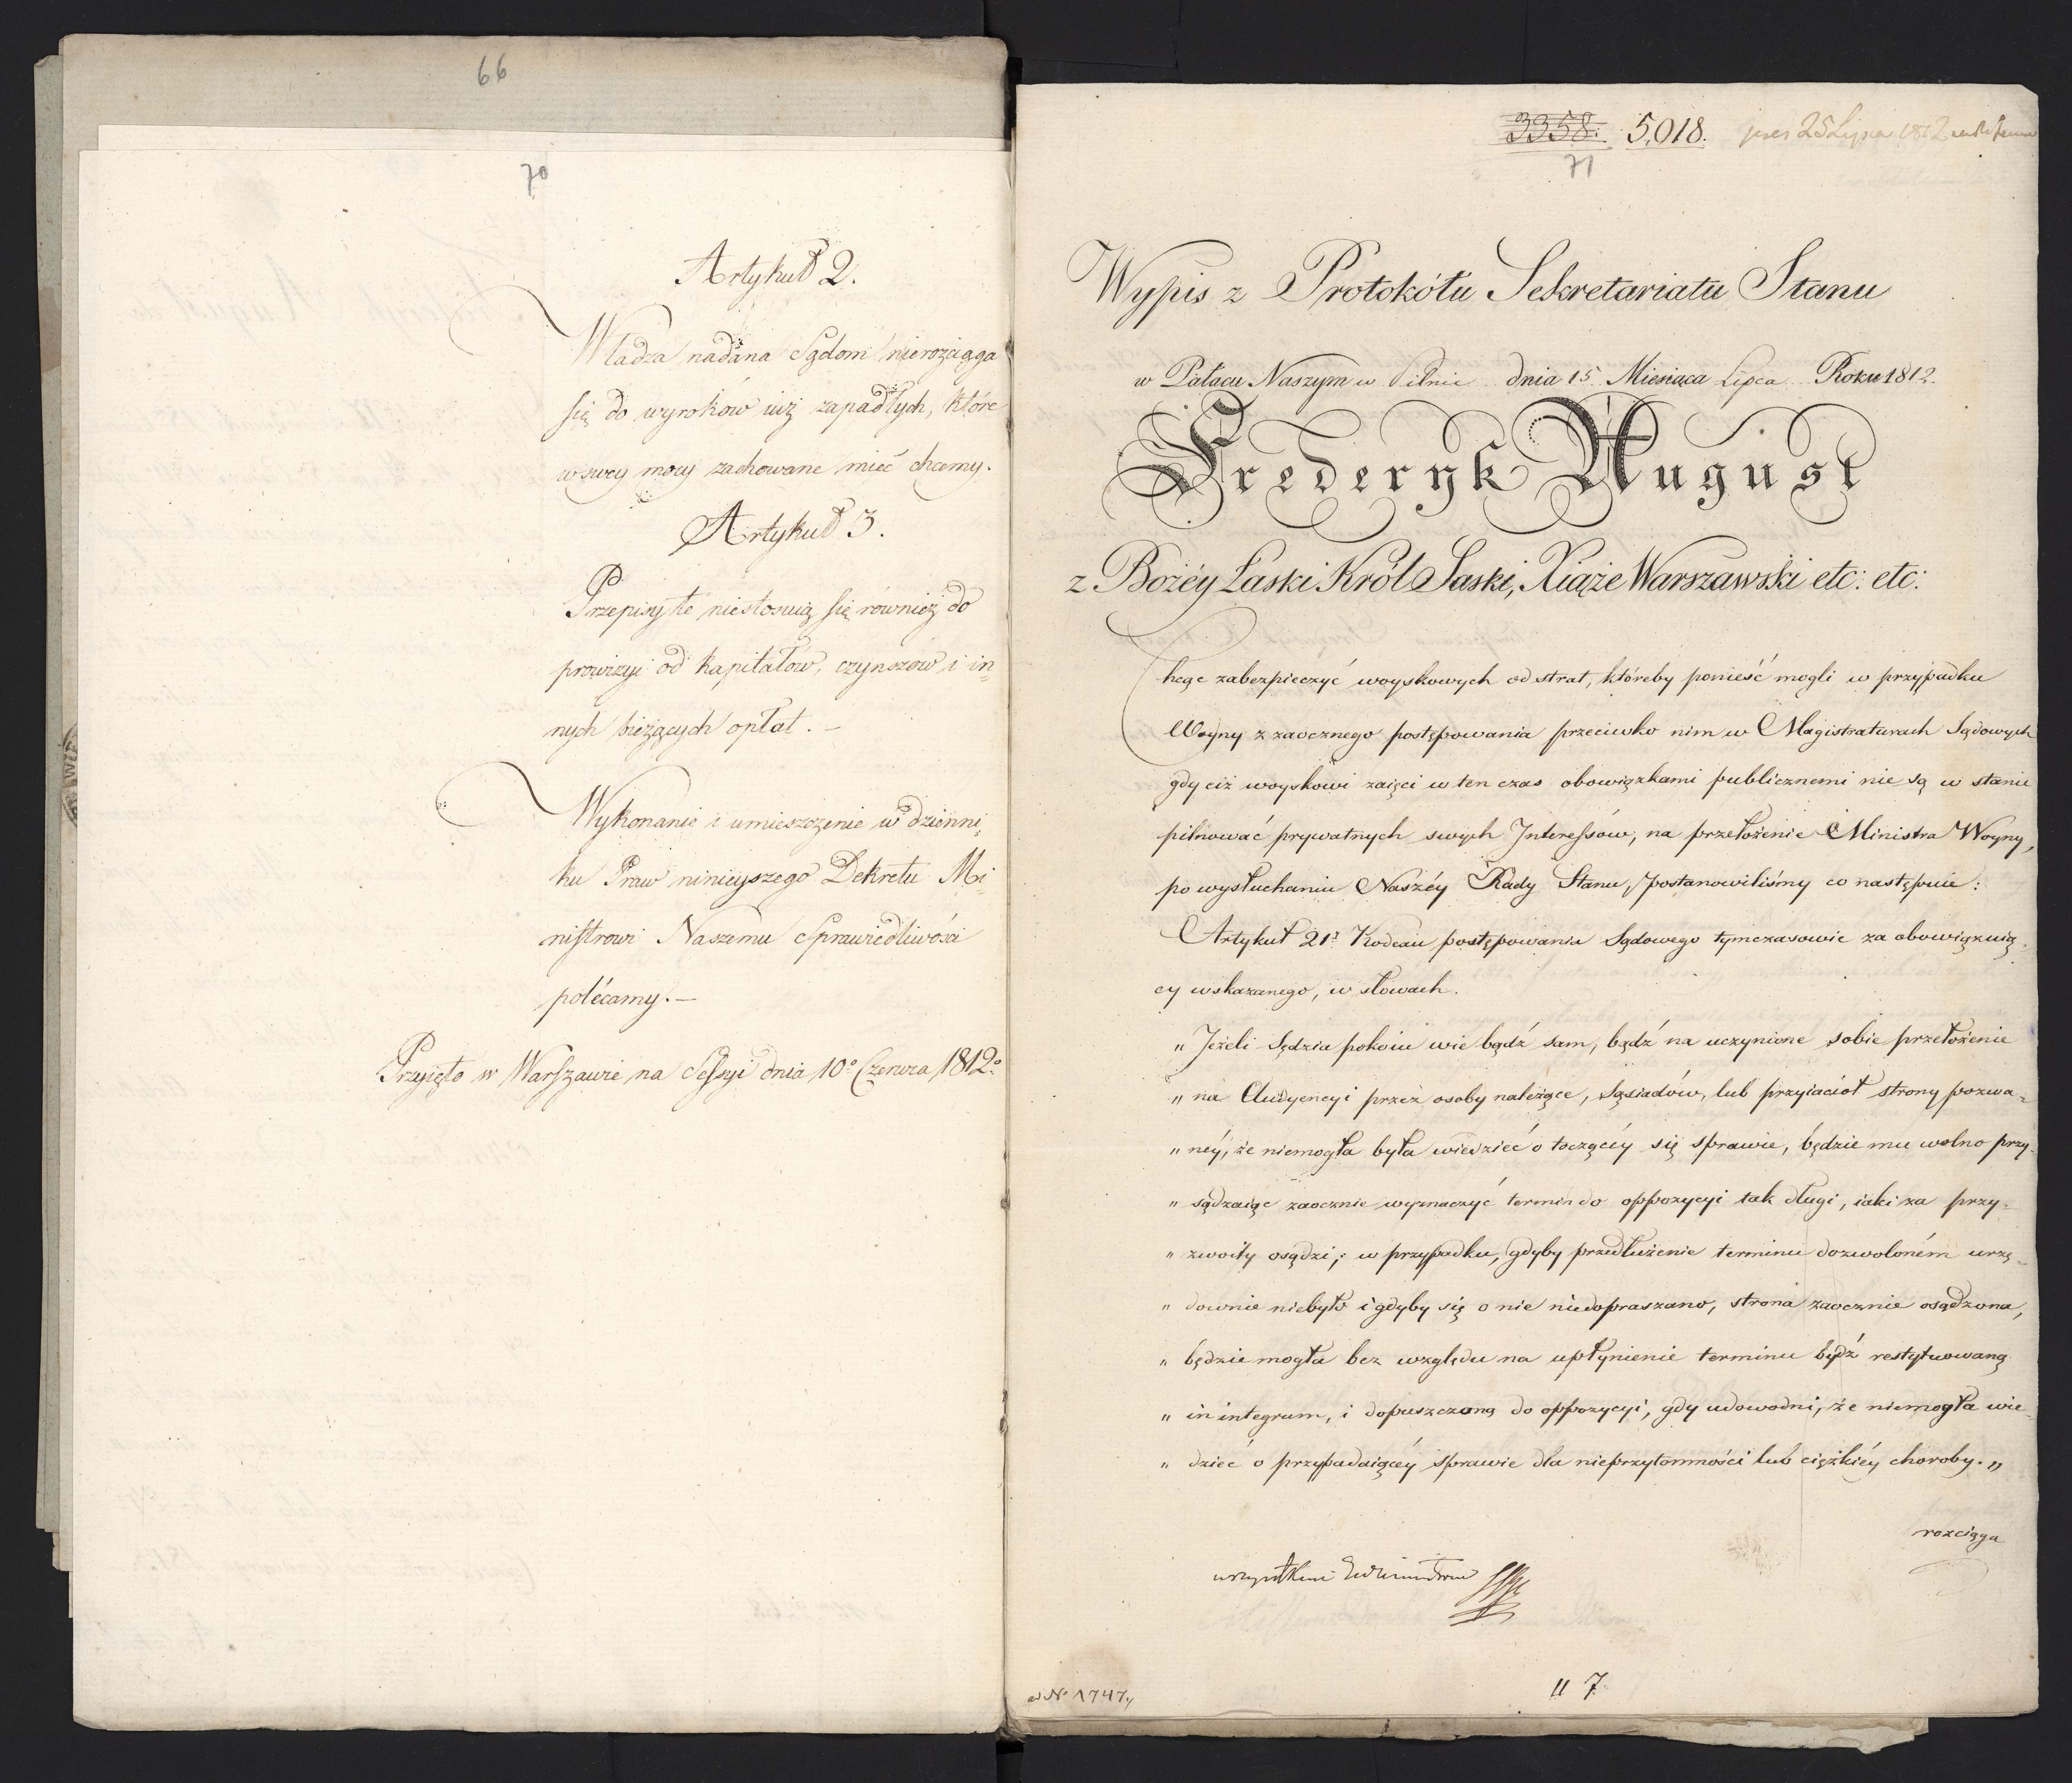 66
70
Artykuł 2.
Władza nadana Sądom nierozciąga
się do wyroków iuż zapadłych, które
w swey mocy zachowane mieć chcemy.
Artykuł 3.
Przepisy te niestosuią się również do
prowizyi od kapitałów, czynszów i in=
nych bieżących opłat. –
Wykonanie i umieszczenie w dzienni=
ku Praw ninieyszego Dekretu Mi=
nistrowi Naszemu Sprawiedliwości
polécamy. –
Przyięto w Warszawie na Sessyi dnia 10º Czerwca 1812º
3358. 5,018. pres 25 Lipca 1812
71
Wypis z Protokółu Sekretariatu Stanu
w Pałacu Naszym w Pilnic dnia 15 Miesiąca Lipca Roku 1812.
Frederyk August
z Bożéy Łaski Król Saski, Xiąże Warszawski etc: etc:
Chcąc zabezpieczyć woyskowych od strat, któreby ponieść mogli w przypadku
Woyny z zaocznego postępowania przeciwko nim w Magistraturach Sądowych
gdy ciż woyskowi zaięci w ten czas obowiązkami publicznemi nie są w stanie
pilnować prywatnych swych Interessów, na przełożenie Ministra Woyny,
po wysłuchaniu Naszéy Rady Stanu, postanowiliśmy co następuie:
Artykuł 21º Kodexu postępowania Sądowego tymczasowie za obowięzuią=
cy wskazanego, w słowach.
„ Jeżeli Sędzia pokoiu wie bądź sam, bądź na uczynione sobie przełożenie
„ na Audyencyi przez osoby należące, Sąsiadów, lub przyiaciół strony pozwa=
„ néy, że niemogła była wiedzieć o toczącéy się sprawie, będzie mu wolno przy=
„ sądzaiąc zaocznie wyznaczyć termin do oppozycyi tak długi, iaki za przy=
„ zwoity osądzi; w przypadku, gdyby przedłużenie terminu dozwoloném urzę=
„ downie niebyło i gdyby się o nie niedopraszano, strona zaocznie osądzona,
„ będzie mogła bez względu na upłynienie terminu bydź restytuowaną
„ in integrum, i dopuszczoną do oppozycyi, gdy udowodni, że niemogła wie=
„ dzieć o przypadaiącéy sprawie dla nieprzytomności lub ciężkiéy choroby. „
rozciąga
wszystkim
ad Nº 1747
11 7